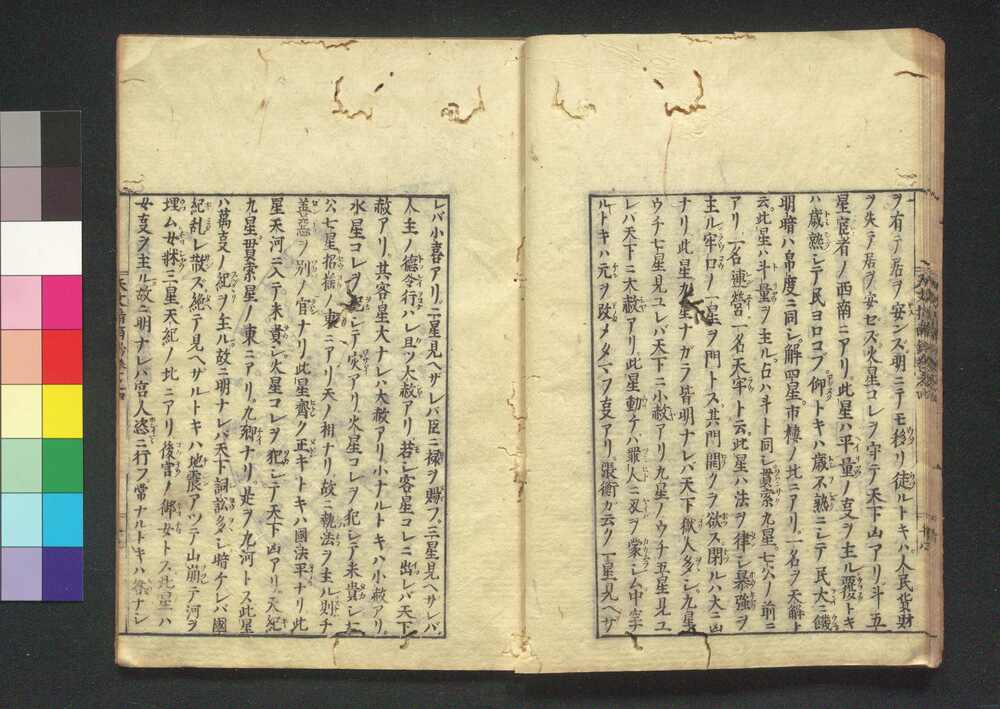 ヲ有テ居ヲ安ンズ明ニテモ移リ徒ルトキハ人民貨財
ヲ失テ居ヲ安セズ火星コレヲ守テ天下凶アリ斗五
星宦者ノ西南ニアリ此星ハ平量ノ支ヲ主ル覆トキ
ハ歳熟シテ民ヨロコブ仰トキハ歳不熟ニシテ民大ニ饑
明暗ハ帛度ニ同シ解四星市樓ノ北ニアリ一名ヲ天解ト
云此星ハ斗量ヲ主ル占ハ斗ト同シ貫索九星七公ノ前ニ
アリ一名連營一名天牢ト云此星ハ法ヲ律シ暴強ヲ
主ル牢口ノ一星ヲ門トス其門開クヲ欲ス閉ルハ大ニ凶
ナリ此星九星ナガラ皆明ナレバ天下獄人多シ九星ノ
ウチ七星見ユレバ天下ニ小赦アリ九星ノウチ五星見ユ
レバ天下ニ大赦アリ此星動ケバ罪人ニ刄ヲ蒙シム中空
ルトキハ元ヲ改メタマフ支アリ張衡カ云ク一星見ヘザ
レバ小喜アリ二星見ヘザレバ臣ニ禄ヲ賜フ三星見ヘサレバ
人主ノ徳令行ハレ且ツ大赦アリ若シ客星コレニ出レバ天下
赦アリ其客星大ナレハ大赦アリ小ナルトキハ小赦アリ
水星コレヲ犯シテ灾アリ火星コレヲ犯シテ米貴シ七
公七星招揺ノ東ニアリ天ノ相ナリ故ニ執法ヲ主ル則チ
善惡ヲ別ノ官ナリ此星齊ク正キトキハ國法平ナリ此
星天河ニ入テ米貴シ火星コレヲ犯シテ天下凶アリ天紀
九星貫索星ノ東ニアリ九卿ナリ是ヲ九河トス此星
ハ萬支ノ紀ヲ主ル故ニ明ナレバ天下詞訟多シ暗ケレバ國
紀乱レ散ズ絶テ見ヘザルトキハ地震アツテ山崩テ河ヲ
埋ム女牀三星天紀ノ北ニアリ後宮ノ御女トス此星ハ
女支ヲ主ル故ニ明ナレバ宮人恣ニ行フ常ナルトキハ咎ナシ